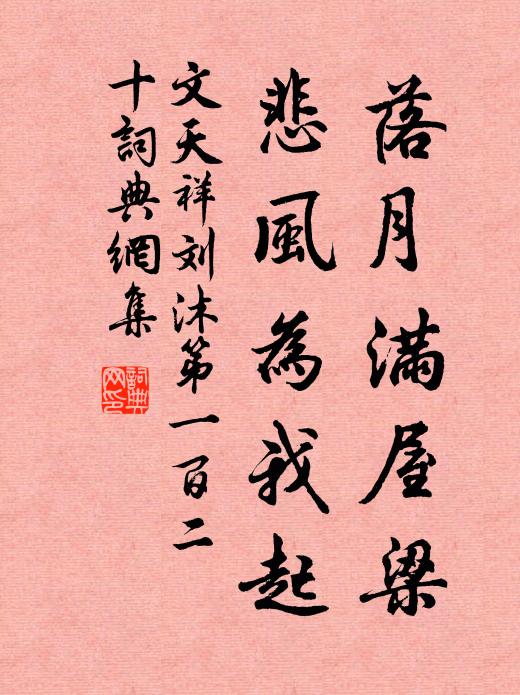 落月满屋梁
悲風為我起
文天祥刘沐第一百二
十詞典網集
詞典网印